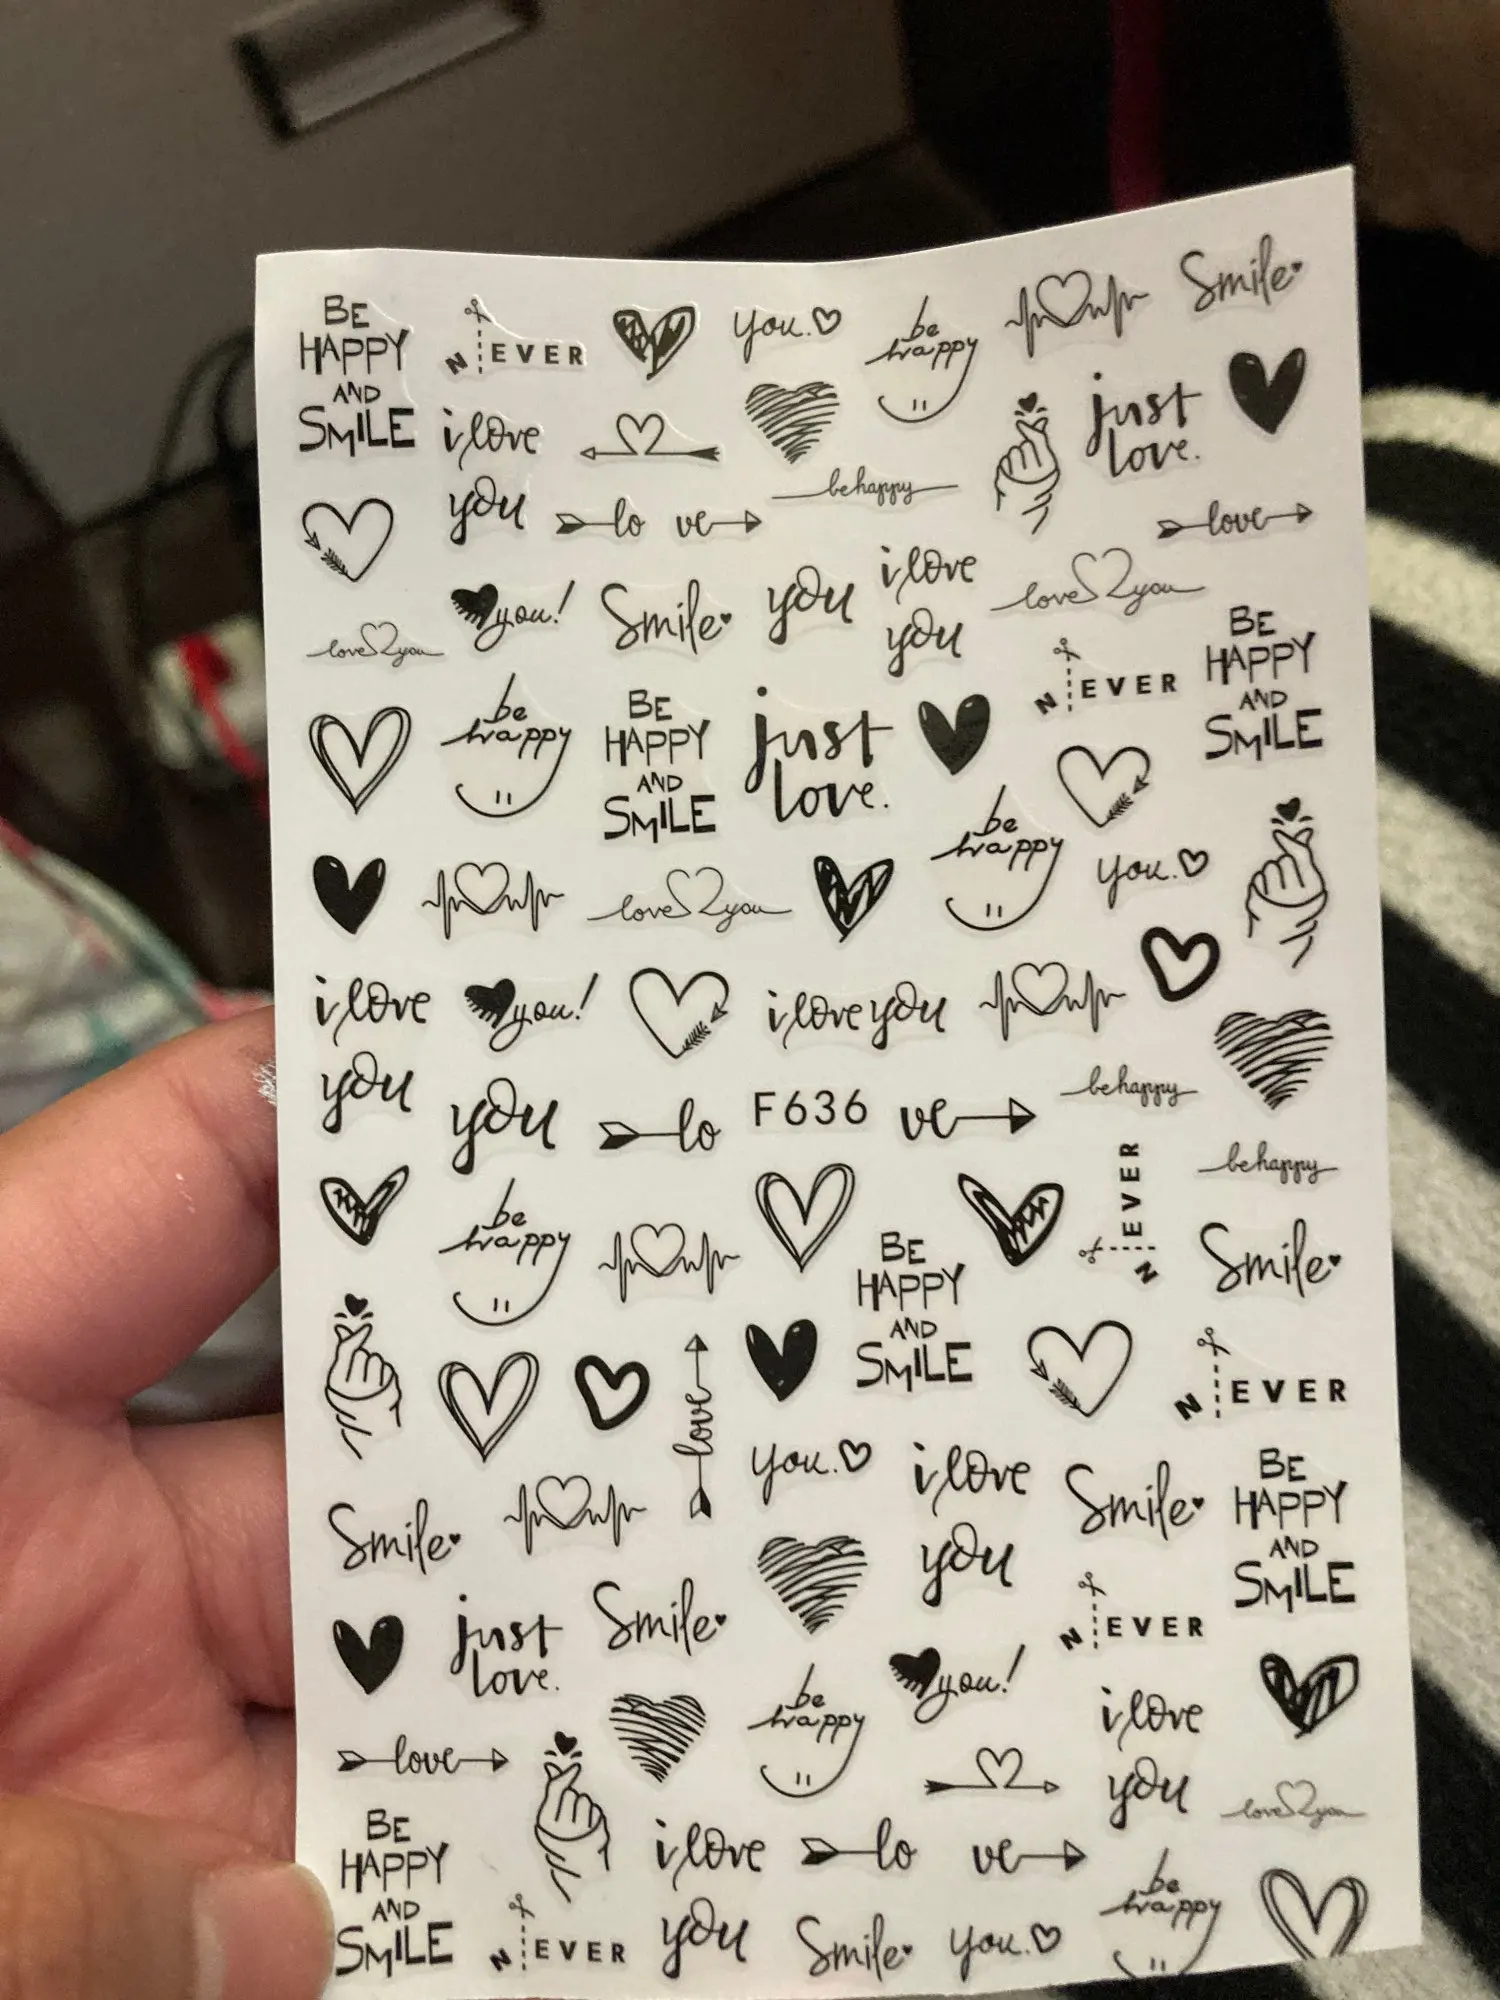 BE
HAPPY
AND
SMILE
N EVER
you.
be
happy
Smile
i love
you
just
love.
be happy
lo ve
love
you!
Smile
you
i love
you
love you
love you
N EVER
BE
HAPPY
AND
SMILE
be
happy
BE
HAPPY
AND
SMILE
just
love.
be
happy
you.
love you
i love
you
you!
i love you
you
lo
F636
ve
be happy
be happy
N EVER
be
happy
BE
HAPPY
AND
SMILE
Smile
love
N EVER
you.
i love
you
Smile
BE
HAPPY
AND
SMILE
Smile
just
love.
Smile
N EVER
you!
be
happy
i love
you
love
love you
BE
HAPPY
AND
SMILE
N EVER
i love
you
lo ve
Smile
you.
be
happy